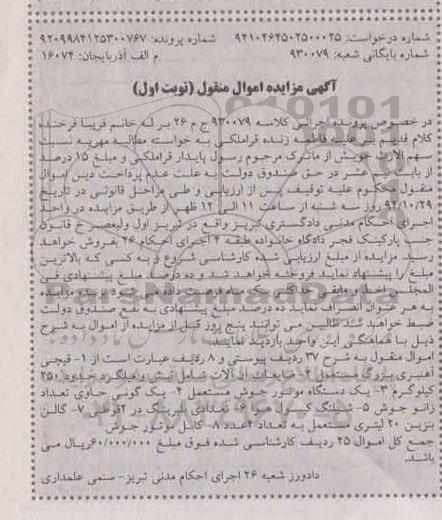 شماره درخواست: ۹۴۱۰۴۶۴۵۰۲۵۰۰۰۲۵ شماره پرونده: ۹۲۰۹۹۸۴۱۲۵۳۰۰۷۶۷
شماره بایگانی شعبه: ۹۳۰۰۷۹ م الف آذربایجان: ۱۶۰۷۴
آگهی مزایده اموال منقول (نوبت اول)
در خصوص پرونده اجرایی کلاسه ۹۳۰۰۷۹ ج م ۲۶ بر له خانم فریبا فرخنده
کلام قدیم بر علیه فاطمه زنده قراملکی به خواسته مطالبه مهریه نسبت
سهم الارث خویش از ماترک مرحوم رسول پایدار قراملکی و مبلغ ۱۵ درصد
از بابت نیم عشر در حق صندوق دولت به علت عدم پرداخت دین اموال
منقول محکوم علیه توقیف پس از ارزیابی و طی مراحل قانونی در تاریخ
۹۴/۱۰/۲۹ روز سه شنبه از ساعت ۱۱ الی ۱۲ ظهر از طریق مزایده در واحد
اجرای احکام مدنی دادگستری تبریز واقع در تبریز اول ولیعصر خ
جنب پارکینگ فجر دادگاه خانواده طبقه ۴ اجرای احکام ۲۶ بفروش خواهد
رسید. مزایده از مبلغ ارزیابی شده کارشناسی شروع و به کسی که بالاترین
مبلغ را پیشنهاد نماید فروخته خواهد شد و ده درصد مبلغ پیشنهادی فی
المجلس اخذ و مابقی حداکثر یک ماه فرصت داده می شود برنده مزایده
به هر عنوان انصراف نماید ده درصد مبلغ پیشنهادی به نفع صندوق دولت
ضبط خواهد شد طالبین می توانند پنج روز قبل از مزایده از اموال به شرح
ذیل با هماهنگی این واحد بازدید نمایند.
اموال منقول به شرح ۳۷ ردیف پیوستی و ۸ ردیف عبارت است از ۱- قیچی
آهنبری بزرگ مستعمل ۲- ضایعات آهن آلات شامل نبشی و میلگرد حدود ۲۵۰
کیلوگرم ۳- یک دستگاه موتور جوش مستعمل ۴- یک گونی حاوی تعداد
زانو جوش ۵- شیلنگ کپسول هوا ۶- تعدادی بلبرینگ در ۲ قوطی ۷- گالن
بنزین ۲۰ لیتری مستعمل به تعداد ۴ عدد ۸- کابل موتور جوش
جمع کل اموال ۲۵ ردیف کارشناسی شده فوق مبلغ ۶۰/۰۰۰/۰۰۰ ریال می
باشد.
دادورز شعبه ۲۶ اجرای احکام مدنی تبریز- صنمی علمداری
ParsNamadData